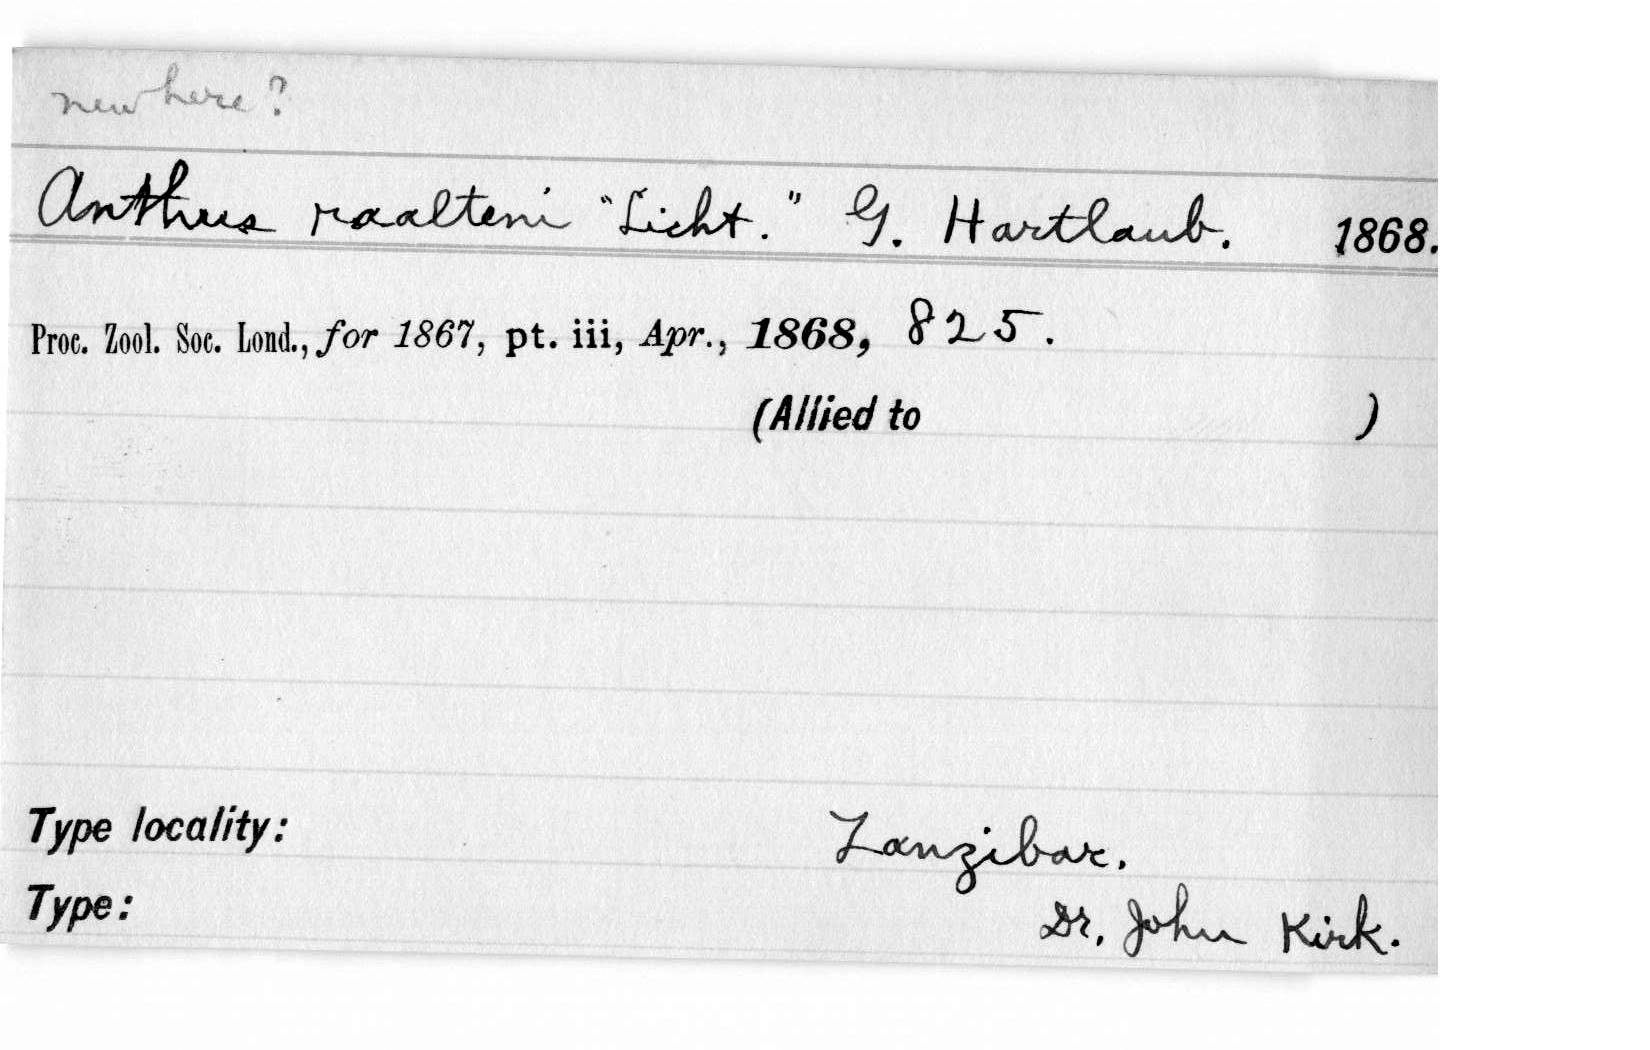 new here?
Anthus raalteni "Licht." G. Hartlaub. 1868.
Proc. Zool. Soc. Lond., for 1867, pt. iii, Apr., 1868, 825.
(Allied to )
Type locality: Zanzibar.
Type: Dr. John Kirk.